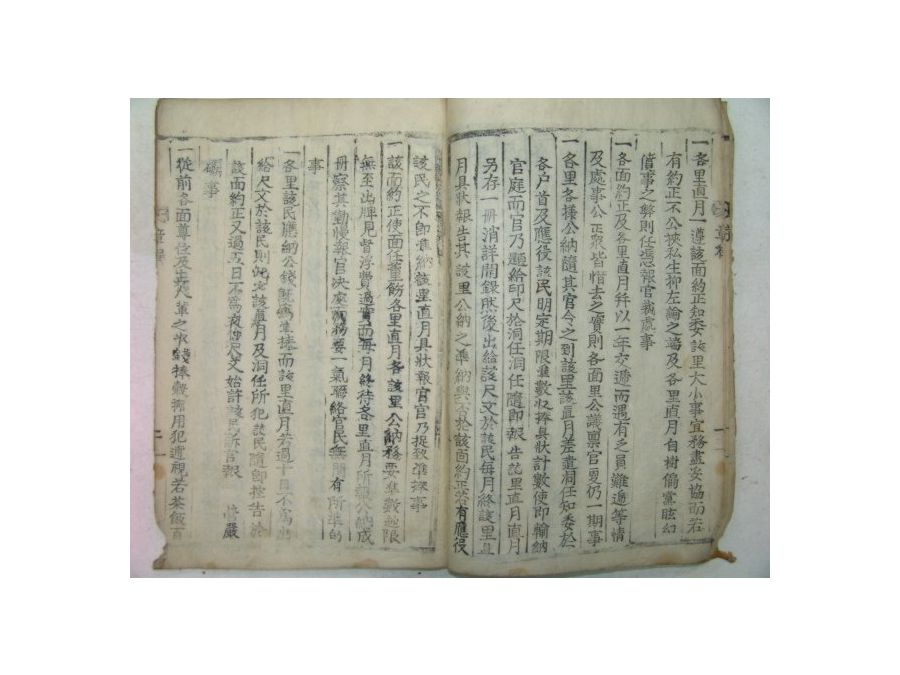 一各里直月一遵該面約正知委該里大小事宜務盡妥協而若
有約正不公挾私生抑左綸之端及各里直月自樹偏黨眩幻
債事之弊則任憑報官裁處事
一各面約正及各里直月幷以一年六遞而遇有之員難適等情
及處事公正衆皆惜去之實則各面里公議禀官更仍一期事
一各里各樣公納隨其官令之到該里直月差遣洞任知委於
各戶首及應役該民明定期限準數收捧具狀計數使卽輸納
官庭而官乃題給印尺於洞任洞任隨卽報告該里直月直月
另存一冊消詳開錄然後出給該尺文於該民每月終該里直
月具狀報告其該里公納之準納與否於該面約正若有應役
該民之不卽準納該里直月具狀報官官乃捉致準捧事
一該面約正使面任董飭各里直月各該里公納務要準數趁限
無至出牌見督浮費過實而每月終待各里直月所報公納成
冊察其勤慢報官決處而務要一氣聯絡官民無間有所準的
事
一各里該民應納公錢旣爲準捧而該里直月若過十日不爲出
給尺文於該民則該里直月及洞任所犯該民隨卽控告於
該面約正又過五日不爲出給尺文始許該民訴官報 嚴
礪事
一從前各面尊位及主人輩之收錢捧穀濫用犯逋視若茶飯
章程